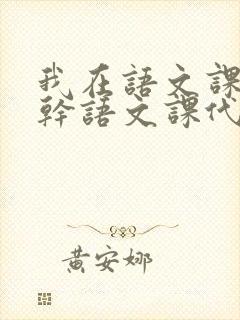 我在語文課
幹語文課代
黃安娜